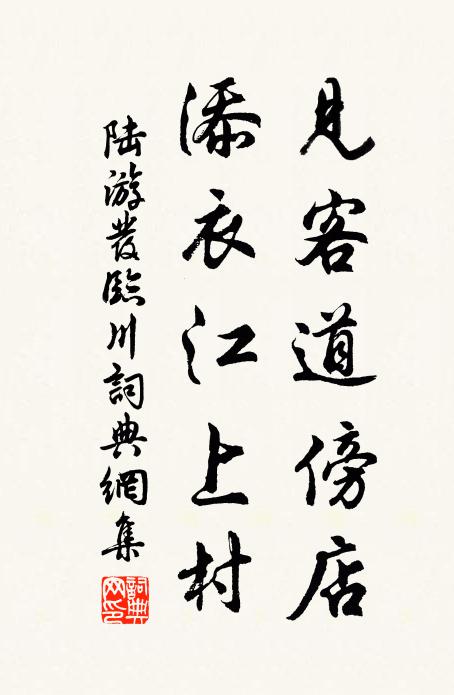 見客道傍店
添衣江上村
陸游發臨川詞典網集
詞典網印